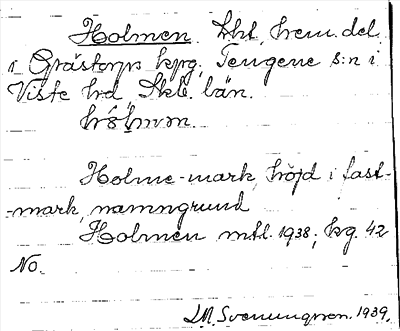 Holmen. lht, hem. del.
i Grästorps kpg, Tengene s:n i
Viste hd Skb. län.
hólmən.
Holme-mark, höjd i fast-
-mark, namngrund
Holmen mtl. 1938; kg. 42
No.
I.M. Svenungsson. 1939.